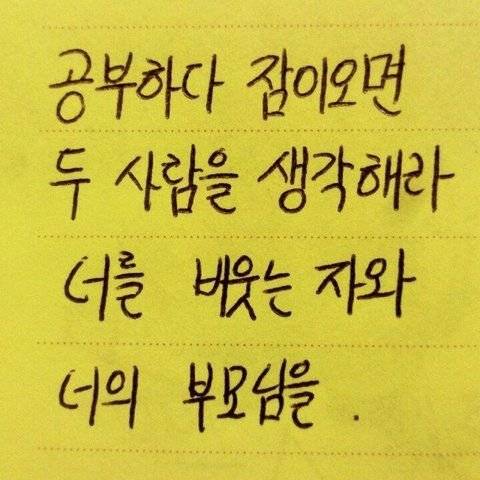 공부하다 잠이오면
두 사람을 생각해라
너를 비웃는 자와
너의 부모님을.